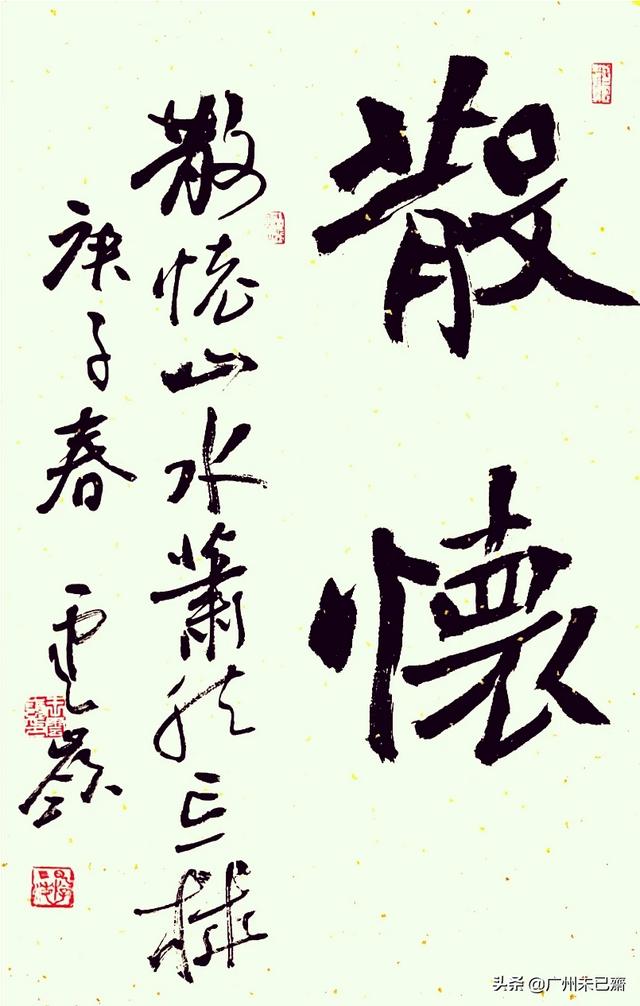 散懷
散懷山水蕭然忘機
庚子春 雲嶺
头条 @广州未已齋